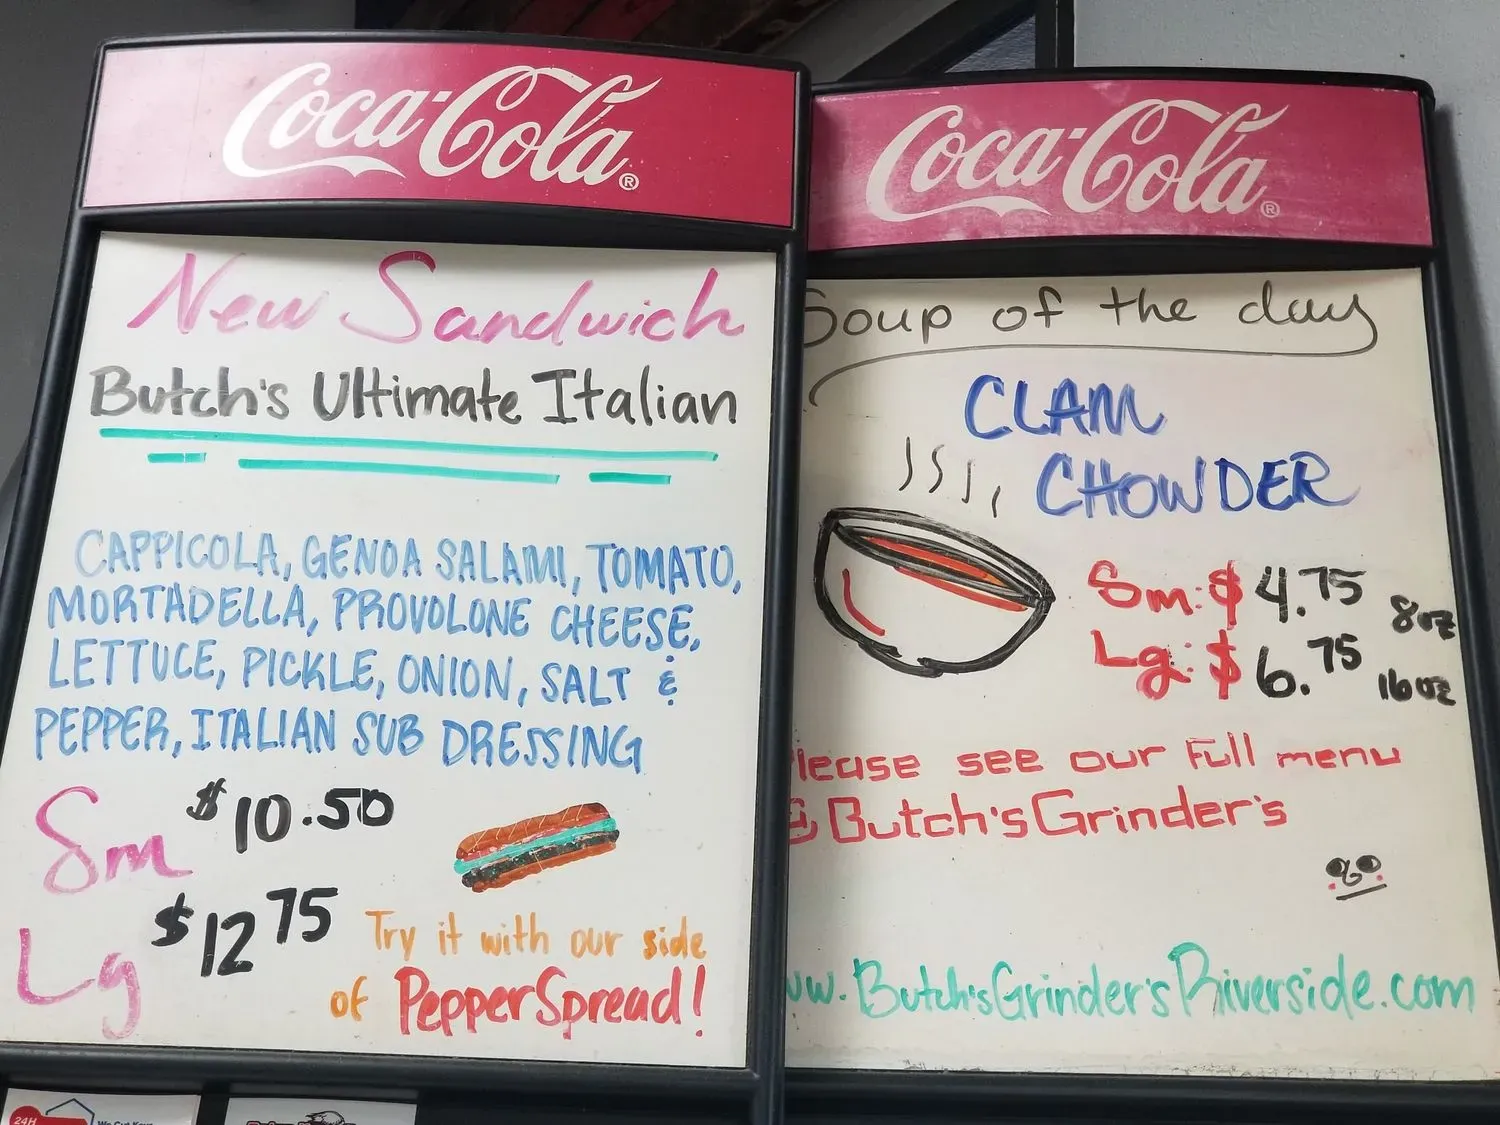 Coca-Cola®
New Sandwich
Butch's Ultimate Italian
CAPPICOLA, GENOA SALAMI, TOMATO,
MORTADELLA, PROVOLONE CHEESE,
LETTUCE, PICKLE, ONION, SALT &
PEPPER, ITALIAN SUB DRESSING
Sm $10.50
Lg $12.75
Try it with our side
of PepperSpread!
Coca-Cola®
Soup of the day
CLAM
CHOWDER
Sm: $4.75 8oz
Lg: $6.75 16oz
Please see our Full menu
@ Butch'sGrinder's
www.Butch'sGrinder'sRiverside.com
24H